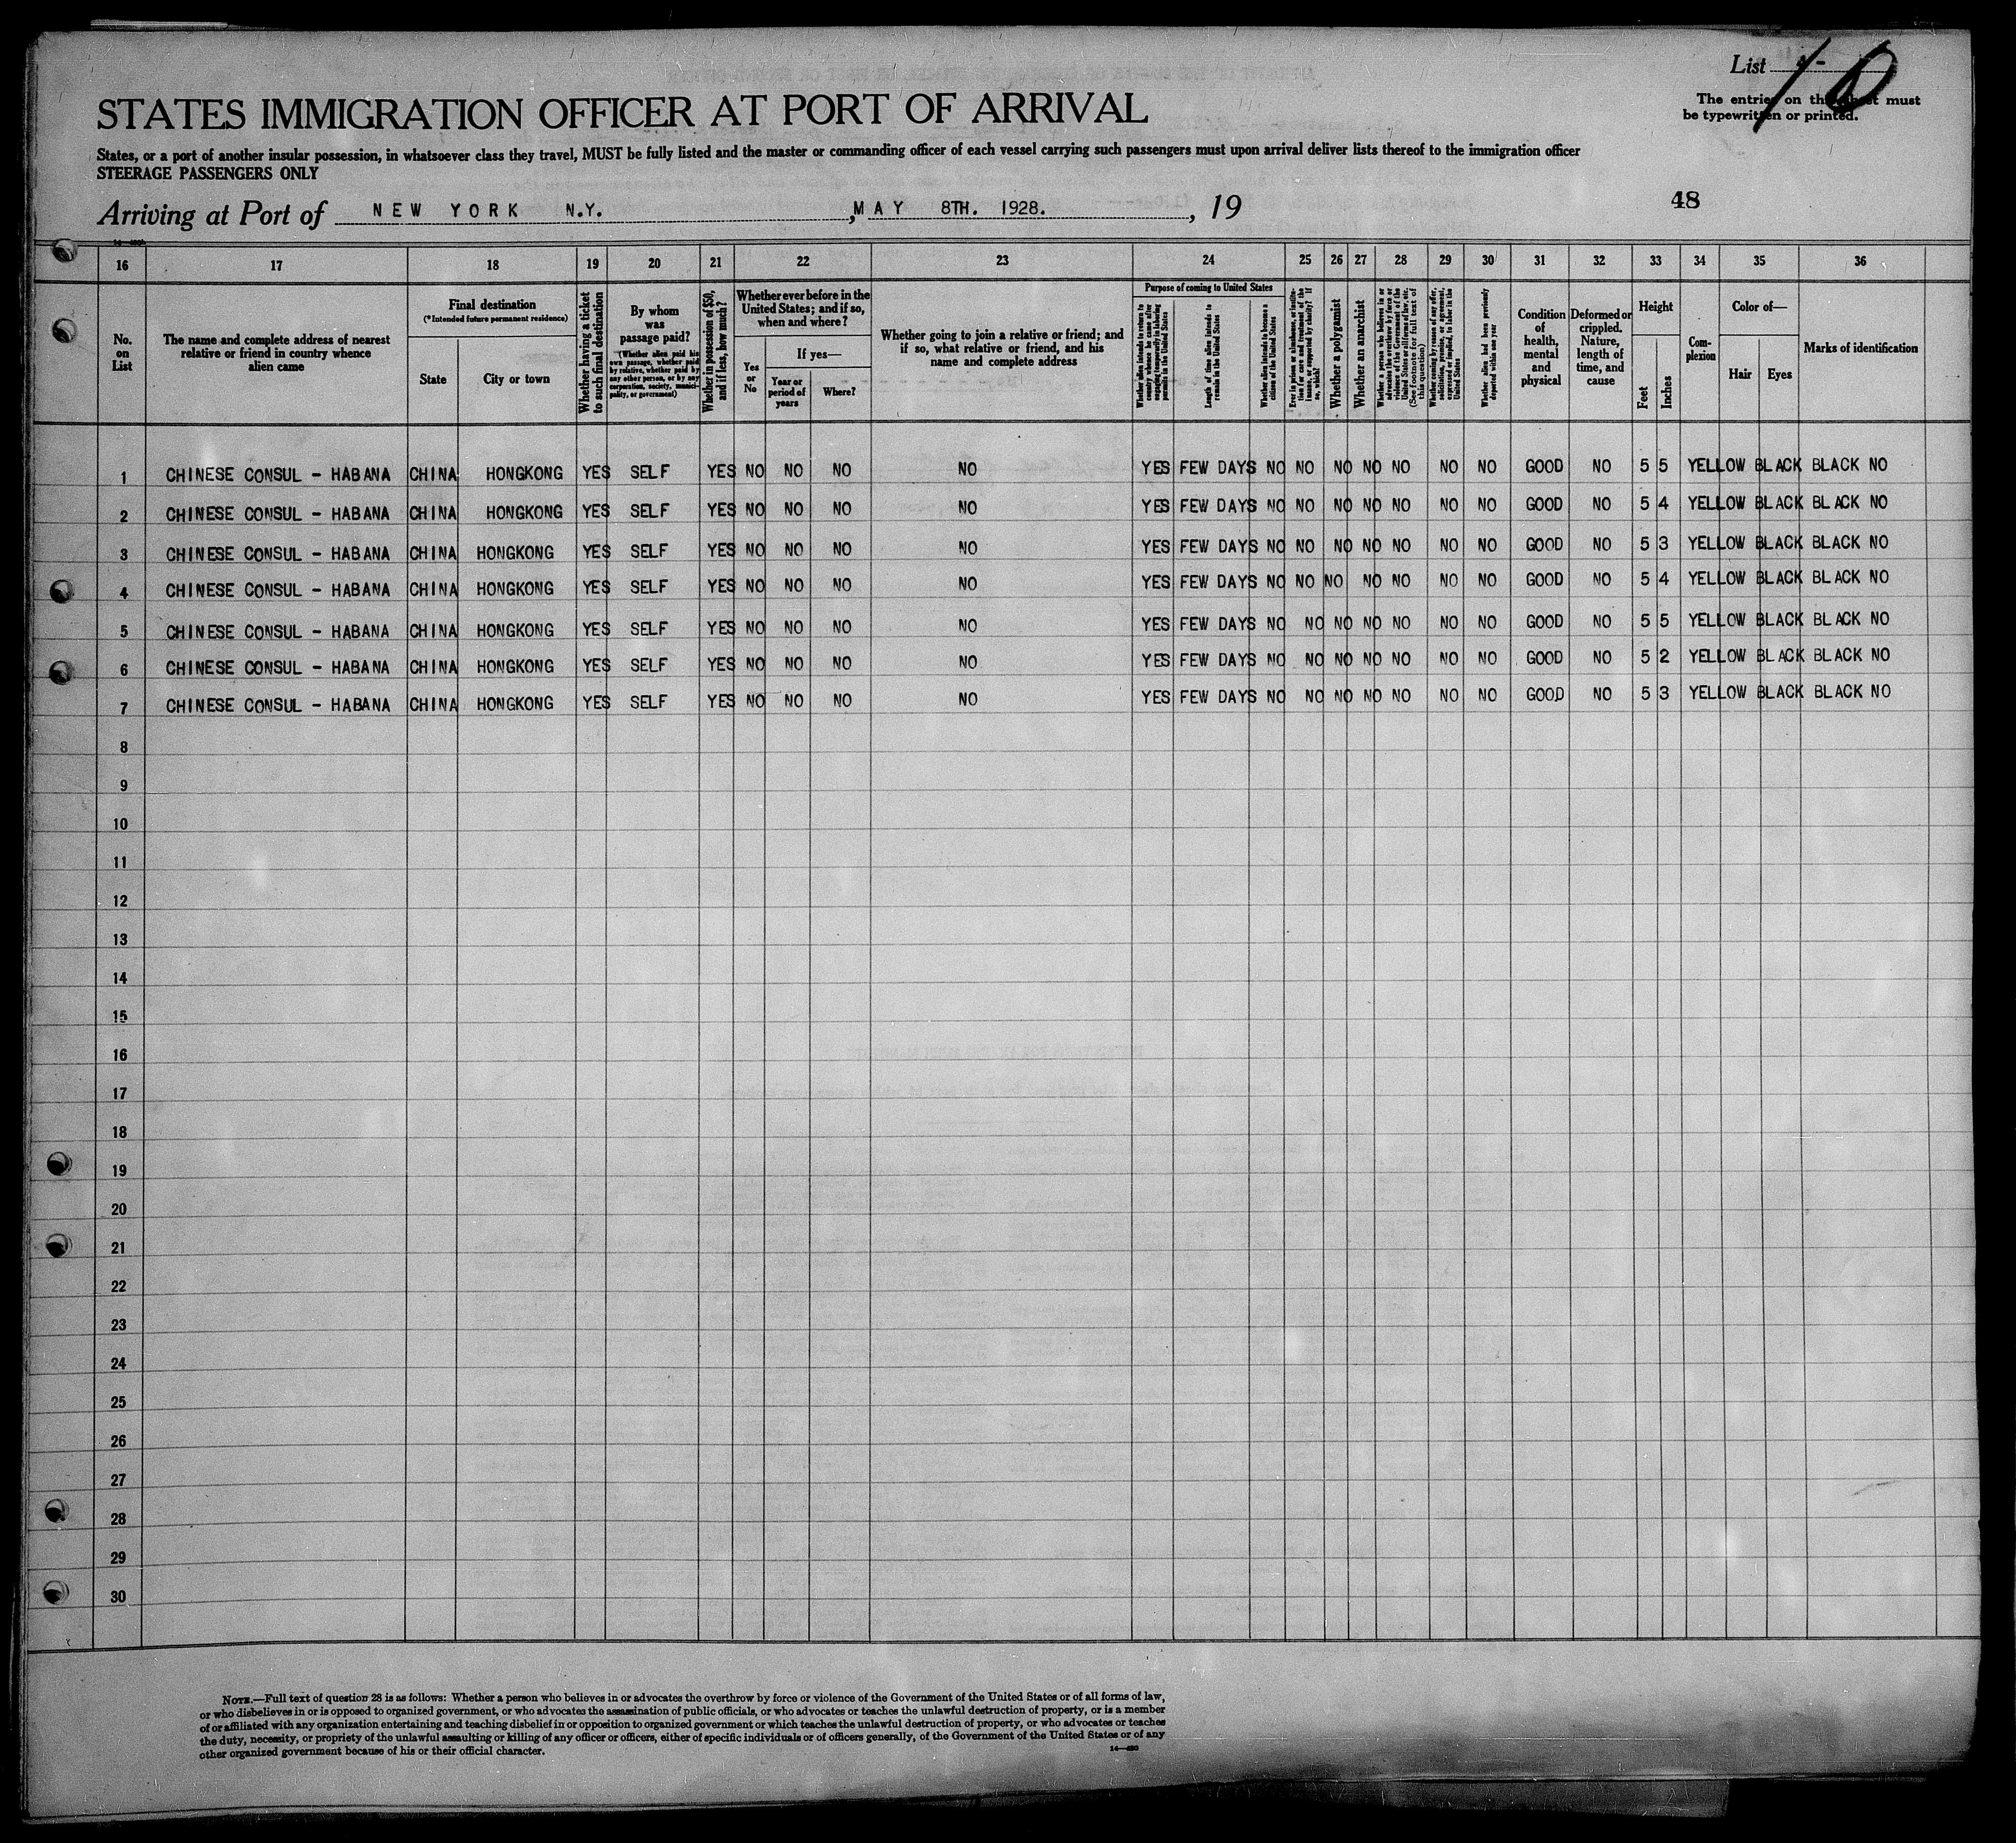 List 10
The entries on this sheet must
be typewritten or printed.
STATES IMMIGRATION OFFICER AT PORT OF ARRIVAL
States, or a port of another insular possession, in whatsoever class they travel, MUST be fully listed and the master or commanding officer of each vessel carrying such passengers must upon arrival deliver lists thereof to the immigration officer
STEERAGE PASSENGERS ONLY
Arriving at Port of NEW YORK N.Y. , MAY 8TH. 1928. , 19
48
16 17 18 19 20 21 22 23 24 25 26 27 28 29 30 31 32 33 34 35 36
No. on List
The name and complete address of nearest relative or friend in country whence alien came
Final destination
(*Intended future permanent residence)
State
City or town
Whether having a ticket to such final destination
By whom was passage paid?
(Whether alien paid his own passage, whether paid by relative, whether paid by any other person, or by any corporation, society, municipality, or government)
Whether in possession of $50, and if less, how much?
Whether ever before in the United States; and if so, when and where?
Yes or No
If yes—
Year or period of years
Where?
Whether going to join a relative or friend; and if so, what relative or friend, and his name and complete address
Purpose of coming to United States
Whether alien intends to return to country whence he came after engaging temporarily in laboring pursuits in the United States
Length of time alien intends to remain in the United States
Whether alien intends to become a citizen of the United States
Ever in prison or almshouse, or institution for care and treatment of the insane, or supported by charity? If so, which?
Whether a polygamist
Whether an anarchist
Whether a person who believes in or advocates the overthrow by force or violence of the Government of the United States or all forms of law, etc. (See footnote for full text of this question)
Whether coming by reason of any offer, solicitation, promise, or agreement, expressed or implied, to labor in the United States
Whether alien had been previously deported within one year
Condition of health, mental and physical
Deformed or crippled. Nature, length of time, and cause
Height
Feet
Inches
Complexion
Color of—
Hair
Eyes
Marks of identification
1 CHINESE CONSUL - HABANA CHINA HONGKONG YES SELF YES NO NO NO NO YES FEW DAYS NO NO NO NO NO NO NO GOOD NO 5 5 YELLOW BLACK BLACK NO
2 CHINESE CONSUL - HABANA CHINA HONGKONG YES SELF YES NO NO NO NO YES FEW DAYS NO NO NO NO NO NO NO GOOD NO 5 4 YELLOW BLACK BLACK NO
3 CHINESE CONSUL - HABANA CHINA HONGKONG YES SELF YES NO NO NO NO YES FEW DAYS NO NO NO NO NO NO NO GOOD NO 5 3 YELLOW BLACK BLACK NO
4 CHINESE CONSUL - HABANA CHINA HONGKONG YES SELF YES NO NO NO NO YES FEW DAYS NO NO NO NO NO NO NO GOOD NO 5 4 YELLOW BLACK BLACK NO
5 CHINESE CONSUL - HABANA CHINA HONGKONG YES SELF YES NO NO NO NO YES FEW DAYS NO NO NO NO NO NO NO GOOD NO 5 5 YELLOW BLACK BLACK NO
6 CHINESE CONSUL - HABANA CHINA HONGKONG YES SELF YES NO NO NO NO YES FEW DAYS NO NO NO NO NO NO NO GOOD NO 5 2 YELLOW BLACK BLACK NO
7 CHINESE CONSUL - HABANA CHINA HONGKONG YES SELF YES NO NO NO NO YES FEW DAYS NO NO NO NO NO NO NO GOOD NO 5 3 YELLOW BLACK BLACK NO
8
9
10
11
12
13
14
15
16
17
18
19
20
21
22
23
24
25
26
27
28
29
30
NOTE.—Full text of question 28 is as follows: Whether a person who believes in or advocates the overthrow by force or violence of the Government of the United States or of all forms of law,
or who disbelieves in or is opposed to organized government, or who advocates the assassination of public officials, or who advocates or teaches the unlawful destruction of property, or is a member
of or affiliated with any organization entertaining and teaching disbelief in or opposition to organized government or which teaches the unlawful destruction of property, or who advocates or teaches
the duty, necessity, or propriety of the unlawful assaulting or killing of any officer or officers, either of specific individuals or of officers generally, of the Government of the United States or of any
other organized government because of his or their official character.
14—480